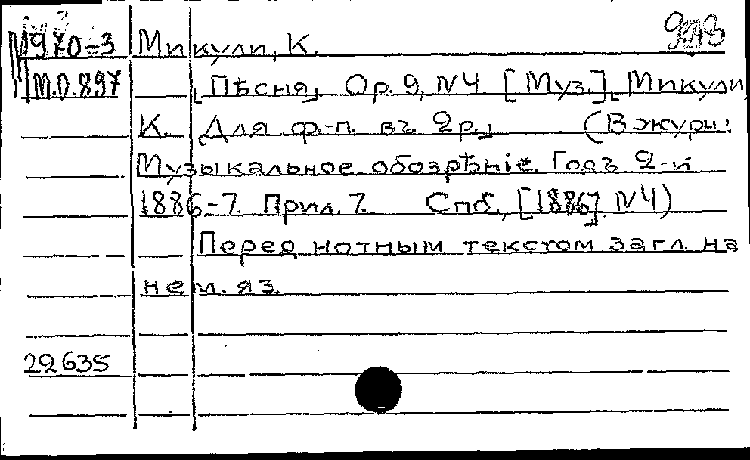 М970-3 Микули, К.
М.О.897 [Пѣсня], Ор. 9, №4. [Муз.], Микули,
К. Для ф-п. въ 2 р.] (В журн:
Музыкальное обозрѣніе. Годъ 2-й
1886-7 Прил. 7. Спб., [1886]. №4)
Перед нотным текстом загл. на
нем. яз.
22635